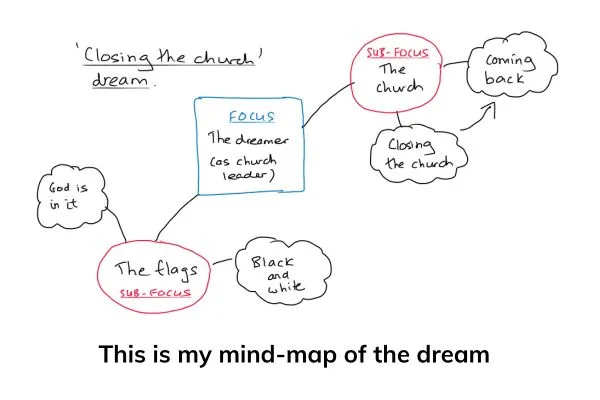 'Closing the church'
dream.
SUB-FOCUS
The
church
Coming
back
Closing
the church
FOCUS
The dreamer
(as church
leader)
God is
in it
The flags
SUB-FOCUS
Black
and
white
This is my mind-map of the dream